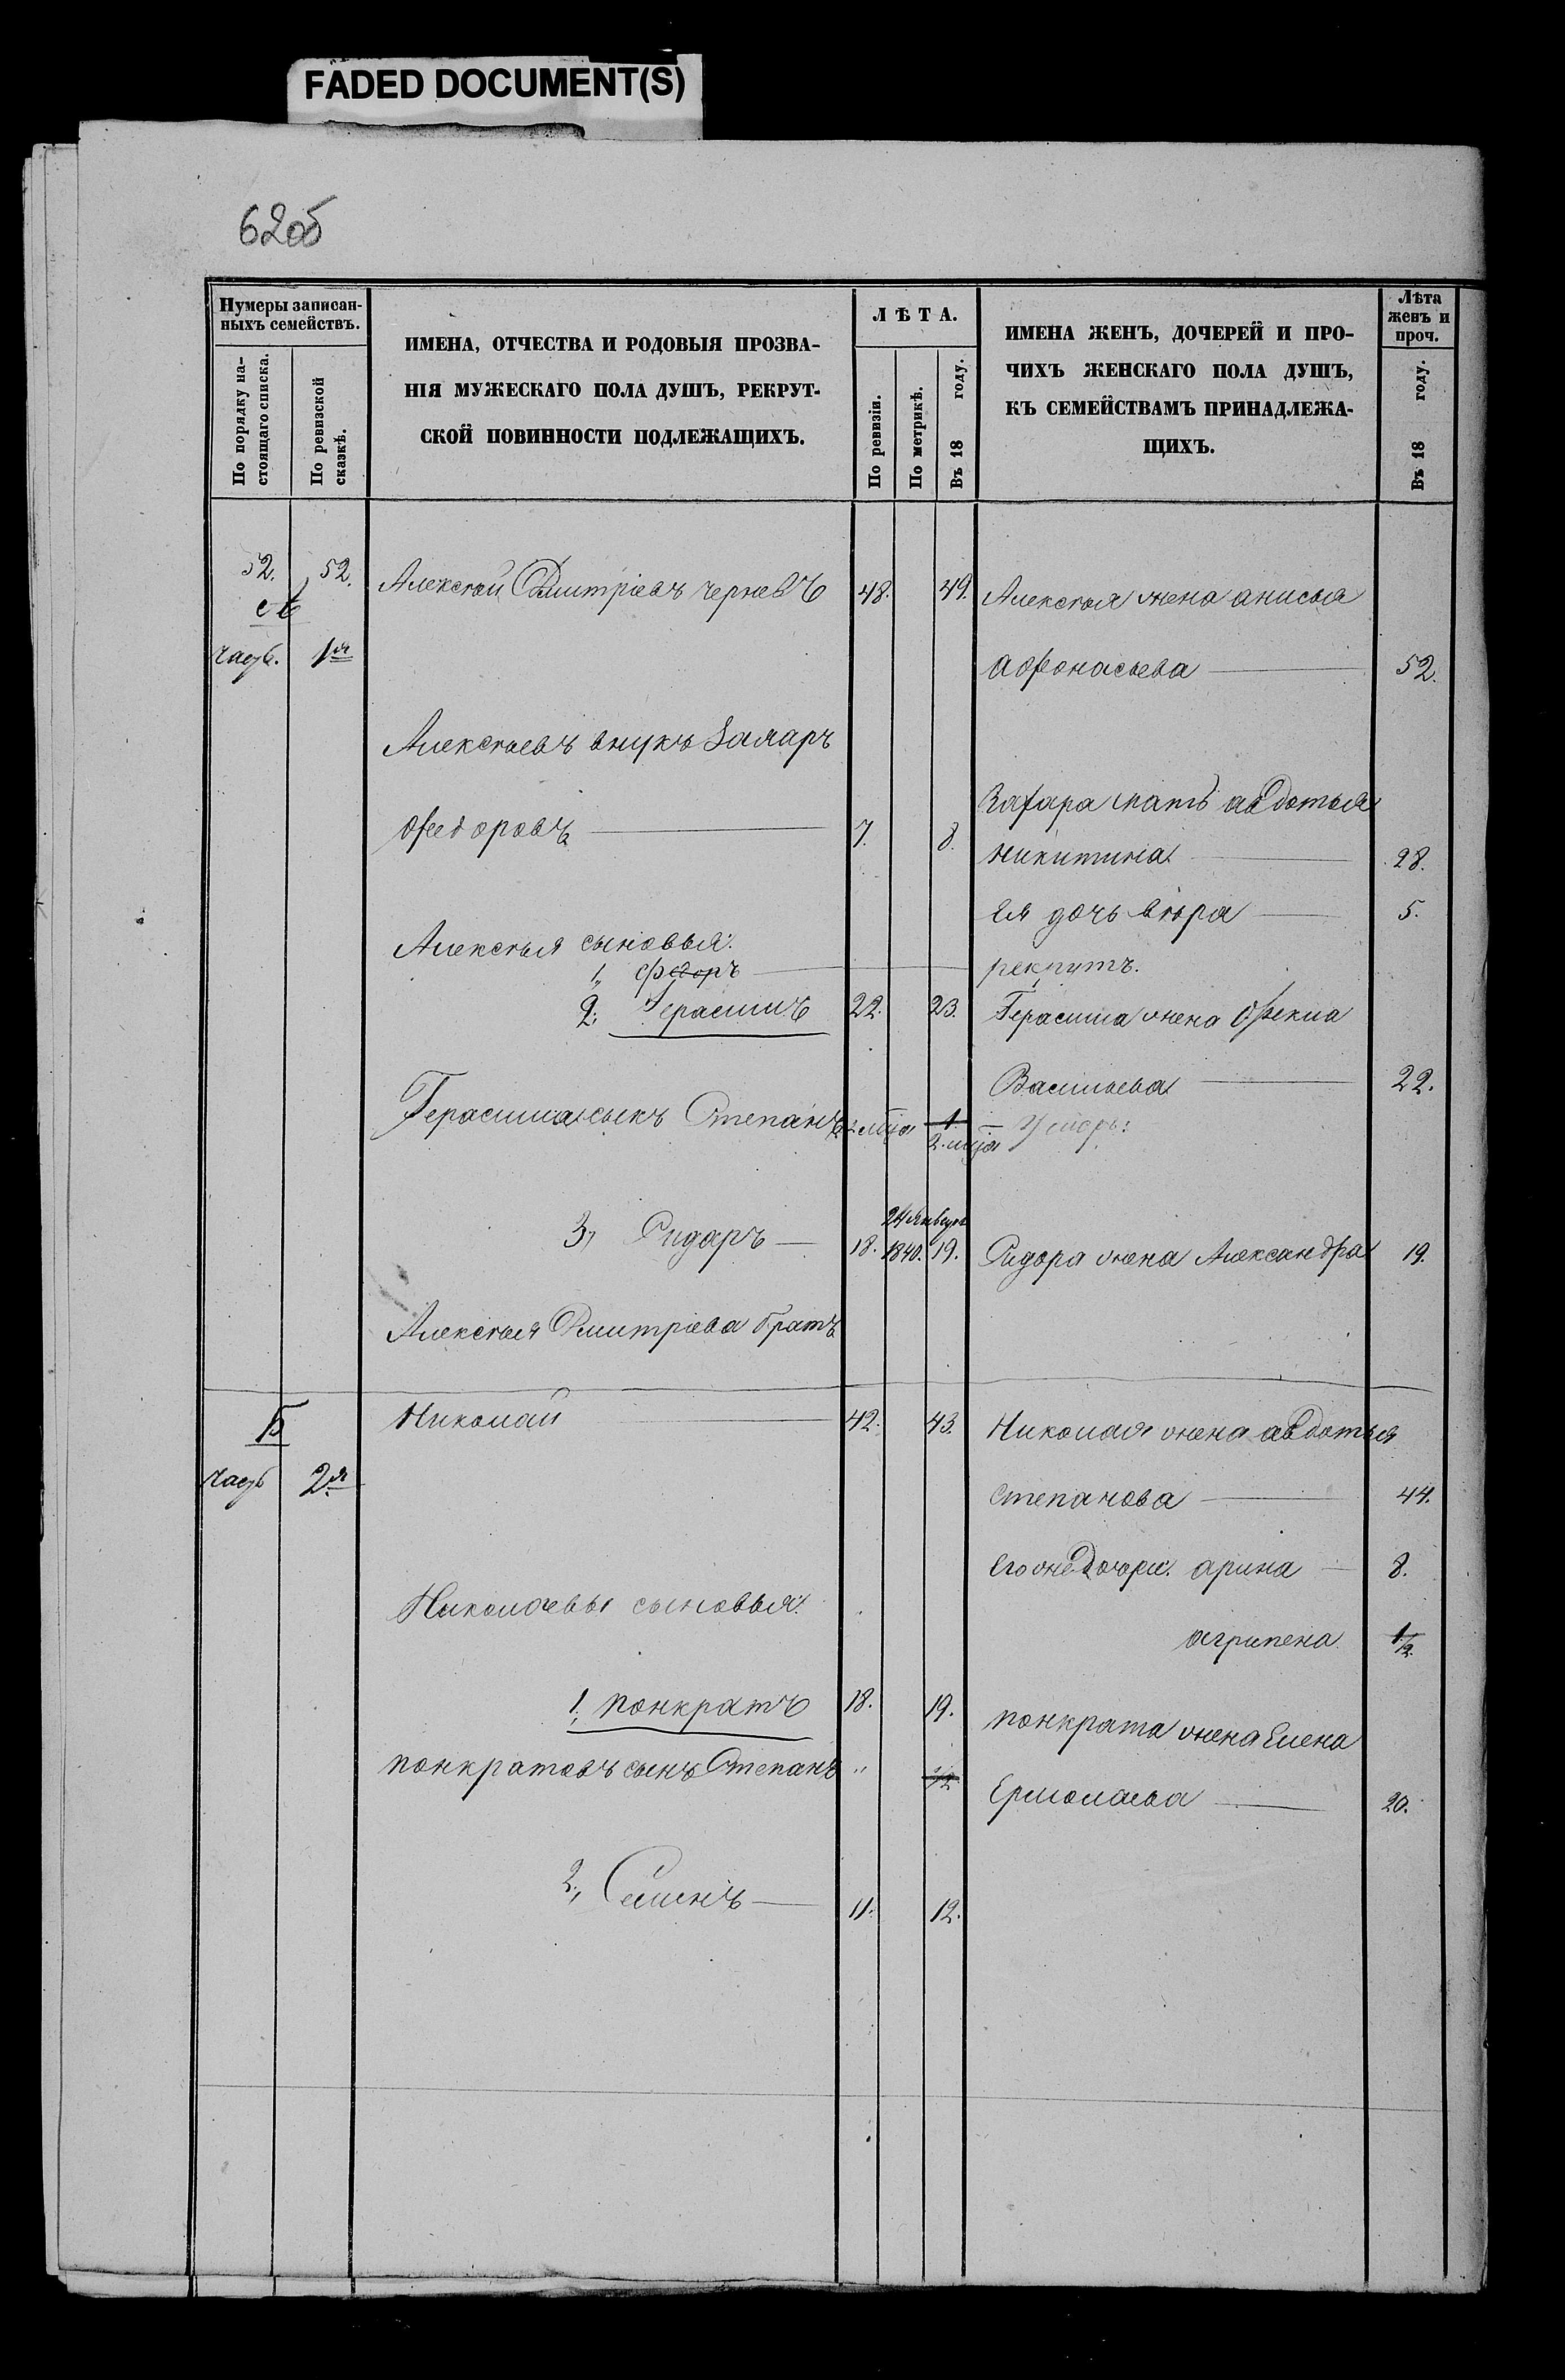 FADED DOCUMENT(S)
62об
Нумеры записан-
ныхъ семействъ.
По порядку на-
стоящаго списка.
По ревизской
сказкѣ.
ИМЕНА, ОТЧЕСТВА И РОДОВЫЯ ПРОЗВА-
НІЯ МУЖЕСКАГО ПОЛА ДУШЪ, РЕКРУТ-
СКОЙ ПОВИННОСТИ ПОДЛЕЖАЩИХЪ.
ЛѢТА.
По ревизіи.
По метрикѣ.
Въ 18 году.
ИМЕНА ЖЕНЪ, ДОЧЕРЕЙ И ПРО-
ЧИХЪ ЖЕНСКАГО ПОЛА ДУШЪ,
КЪ СЕМЕЙСТВАМЪ ПРИНАДЛЕЖА-
ЩИХЪ.
Лѣта
женъ и
проч.
Въ 18 году.
52. 52. Алексѣй Дмитріевъ Черневъ 48. 49. Алексѣя жена анисья
А
часть. 1я
афонасьева 52.
Алексѣевъ внукъ Захаръ
Захара мать авдотья
Ѳедоровъ 7. 8.
никитина 28.
Ея дочь вѣра 5.
Алексѣя сыновья:
1, Федоръ рекрутъ.
2, Герасимъ 22. 23. Герасима жена Ѳекла
Васильева 22.
Герасима сынъ Степанъ 2 мѣца 1 Умеръ:
2. мѣца
24 Января
3, Сидаръ 18. 1840. 19. Сидора жена Александра 19.
Алексѣя Дмитріева братъ
Б
Николай 42. 43. Николая жена авдотья
часть 2я
степанова 44.
Его же дочери. арина 8.
Николаевы сыновья:
агрипена 1/2.
1, понкратъ 18. 19. понкрата жена Елена
понкратовъ сынъ Степанъ " 1/2
Ермолаева 20.
2, Семенъ 11. 12.